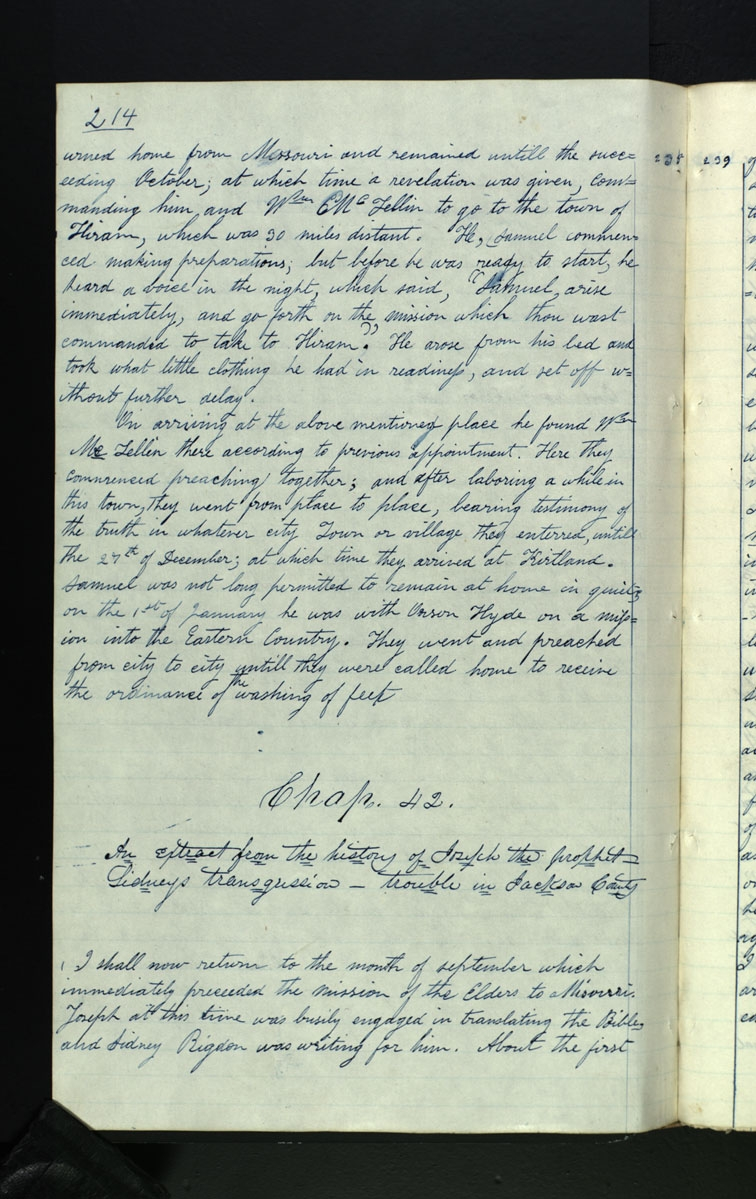 214
urned home from Missouri and remained untill the succ=
eeding October; at which time a revelation was given, com=
manding him and Wm E Mc Lellin to go to the town of
Hiram, which was 30 miles distant. He, Samuel commen=
ced making preparations; but before he was ready to start, he
heard a voice in the night, which said, "Samuel, arise
immediately, and go forth on the mission which thou wast
commanded to take to Hiram." He arose from his bed and
took what little clothing he had in readiness, and set off w=
ithout further delay.
On arriving at the above mentioned place he found Wm
Mc Lellin there according to previous appointment. Here they
commenced preaching together; and after laboring a while in
this town, they went from place to place, bearing testimony of
the truth in whatever city Town or village they enterred, untill
the 27th of December; at which time they arrived at Kirtland.
Samuel was not long permitted to remain at home in quiet;
on the 1st of January he was with Orson Hyde on a miss=
ion into the Eastern Country. They went and preached
from city to city untill they were called home to receive
the ordinance of the washing of feet
Chap. 42.
An extract from the history of Joseph the prophet=
Sidneys transgression — trouble in Jackson County
I shall now return to the month of september which
immediately preceeded the mission of the Elders to Misourri.
Joseph at this time was busily engaged in translating the Bible,
and Sidney Rigdon was writing for him. About the first
239